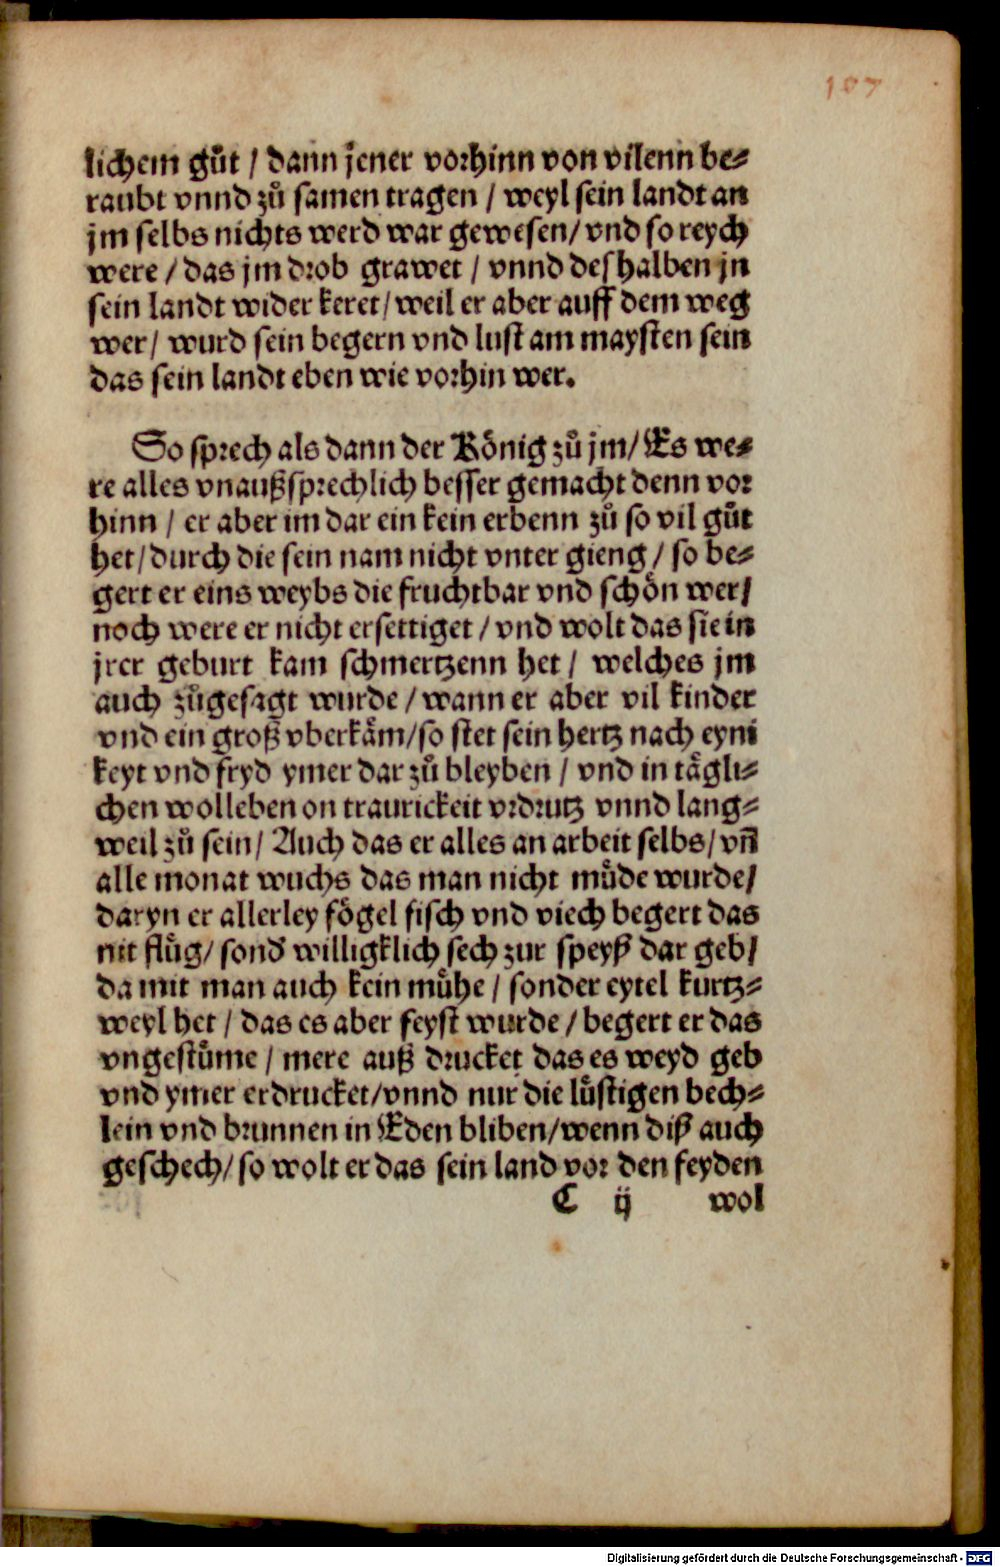 107
lichem guͦt / dann jener vorhinn von vilenn be⸗
raubt vnnd zuͦ samen tragen / weyl sein landt an
jm selbs nichts werd war gewesen / vnd so reych
were / das jm drob grawet / vnnd deshalben jn
sein landt wider keret / weil er aber auff dem weg
wer / wurd sein begern vnd lust am maysten sein
das sein landt eben wie vorhin wer.
So sprech als dann der Koͤnig zuͦ jm / Es we⸗
re alles vnaußsprechlich besser gemacht denn vor
hinn / er aber im dar ein kein erbenn zuͦ so vil guͦt
het / durch die sein nam nicht vnter gieng / so be⸗
gert er eins weybs die fruchtbar vnd schoͤn wer /
noch were er nicht ersettiget / vnd wolt das sie in
jrer geburt kam schmertzenn het / welches jm
auch zuͦgesagt wurde / wann er aber vil kinder
vnd ein groß vberkaͤm / so stet sein hertz nach eyni
keyt vnd fryd ymer dar zuͦ bleyben / vnd in taͤgli⸗
chen wolleben on traurickeit vrdrutz vnnd lang⸗
weil zuͦ sein / Auch das er alles an arbeit selbs / vn̄
alle monat wuchs das man nicht muͤde wurde /
daryn er allerley foͤgel fisch vnd viech begert das
nit fluͤg / sond᷑ willigklich sech zur speyß dar geb /
da mit man auch kein muͤhe / sonder eytel kurtz⸗
weyl het / das es aber feyst wurde / begert er das
vngestuͤme / mere auß drucket das es weyd geb
vnd ymer erdrucket / vnnd nur die luͤstigen bech⸗
lein vnd brunnen in Eden bliben / wenn diß auch
geschech / so wolt er das sein land vor den feyden
C ij wol
Digitalisierung gefördert durch die Deutsche Forschungsgemeinschaft - DFG